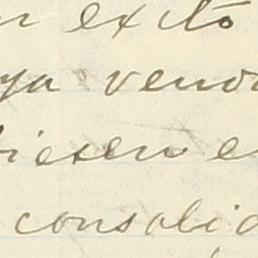 n exito
ya vend
iesen e
consolid